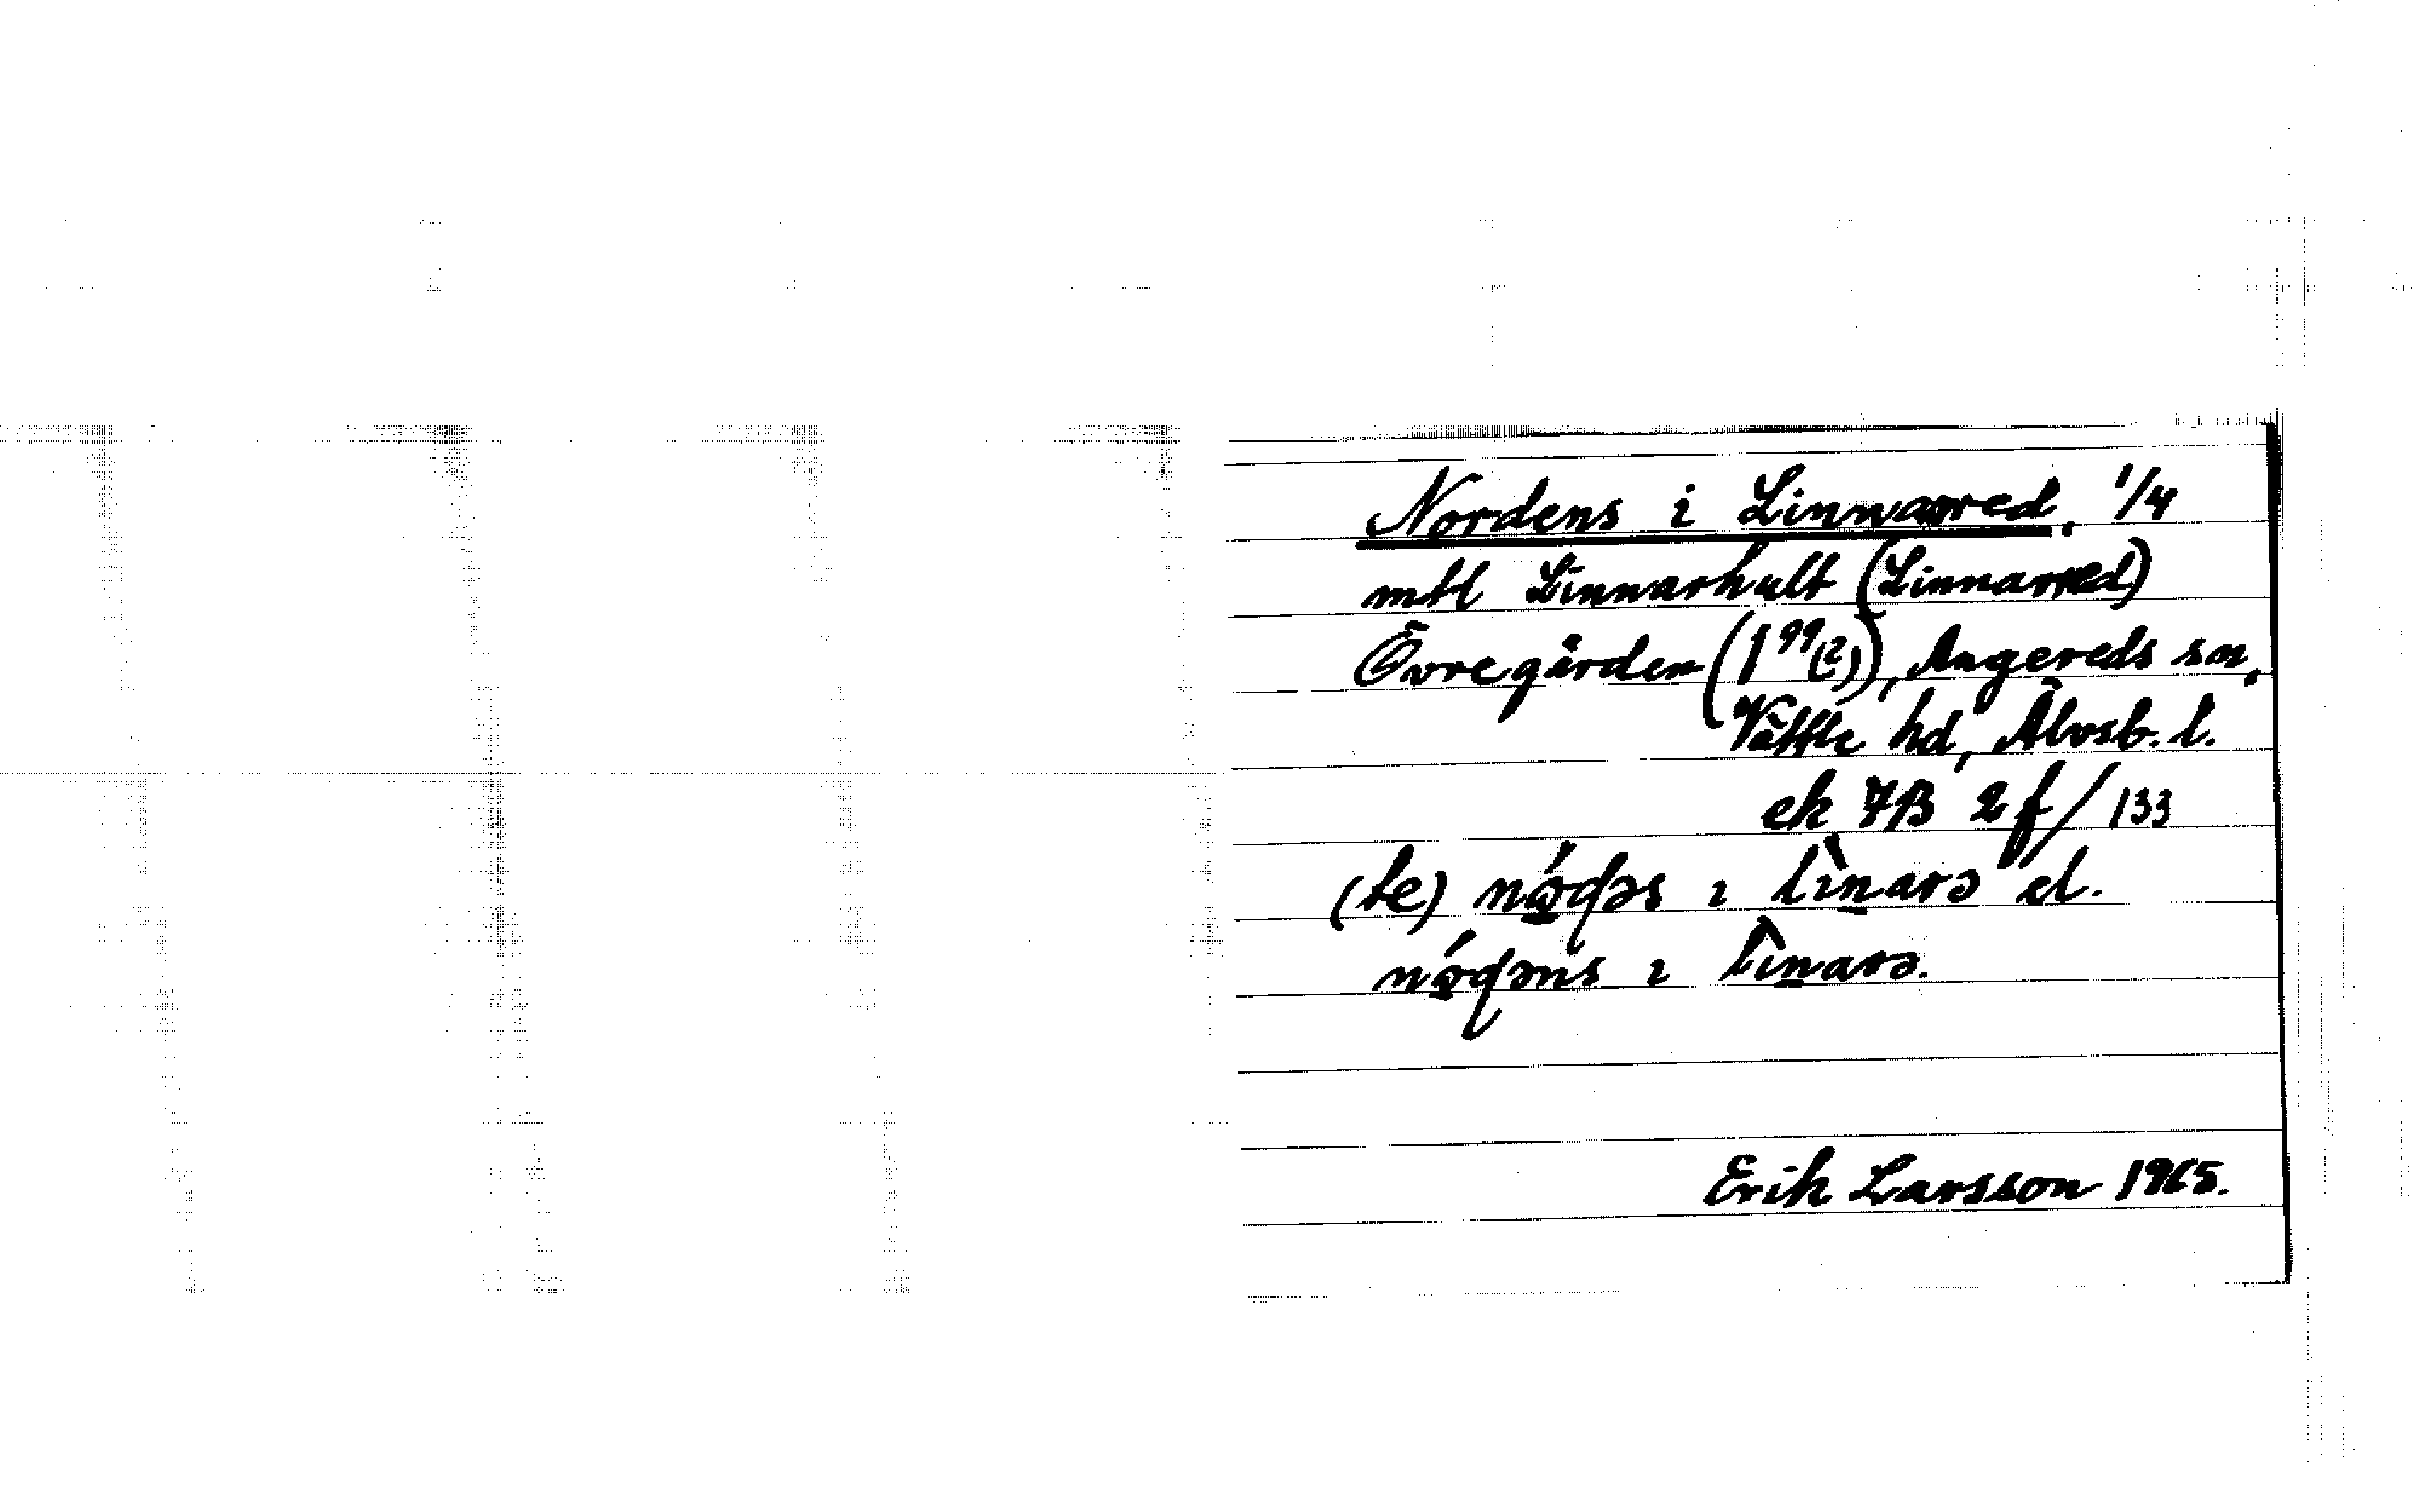 Nordens i Linnarred. 1/4
mtl Linnarhult (Linnarred)
Övregården (1⁹⁹(2)), Angereds sn,
Vättle hd, Älvsb. l.
ek 7B 2 f/133
(te) nǿɖəs ɪ lìnarə el.
nǿɖəns ɪ lìnarə.
Erik Larsson 1965.